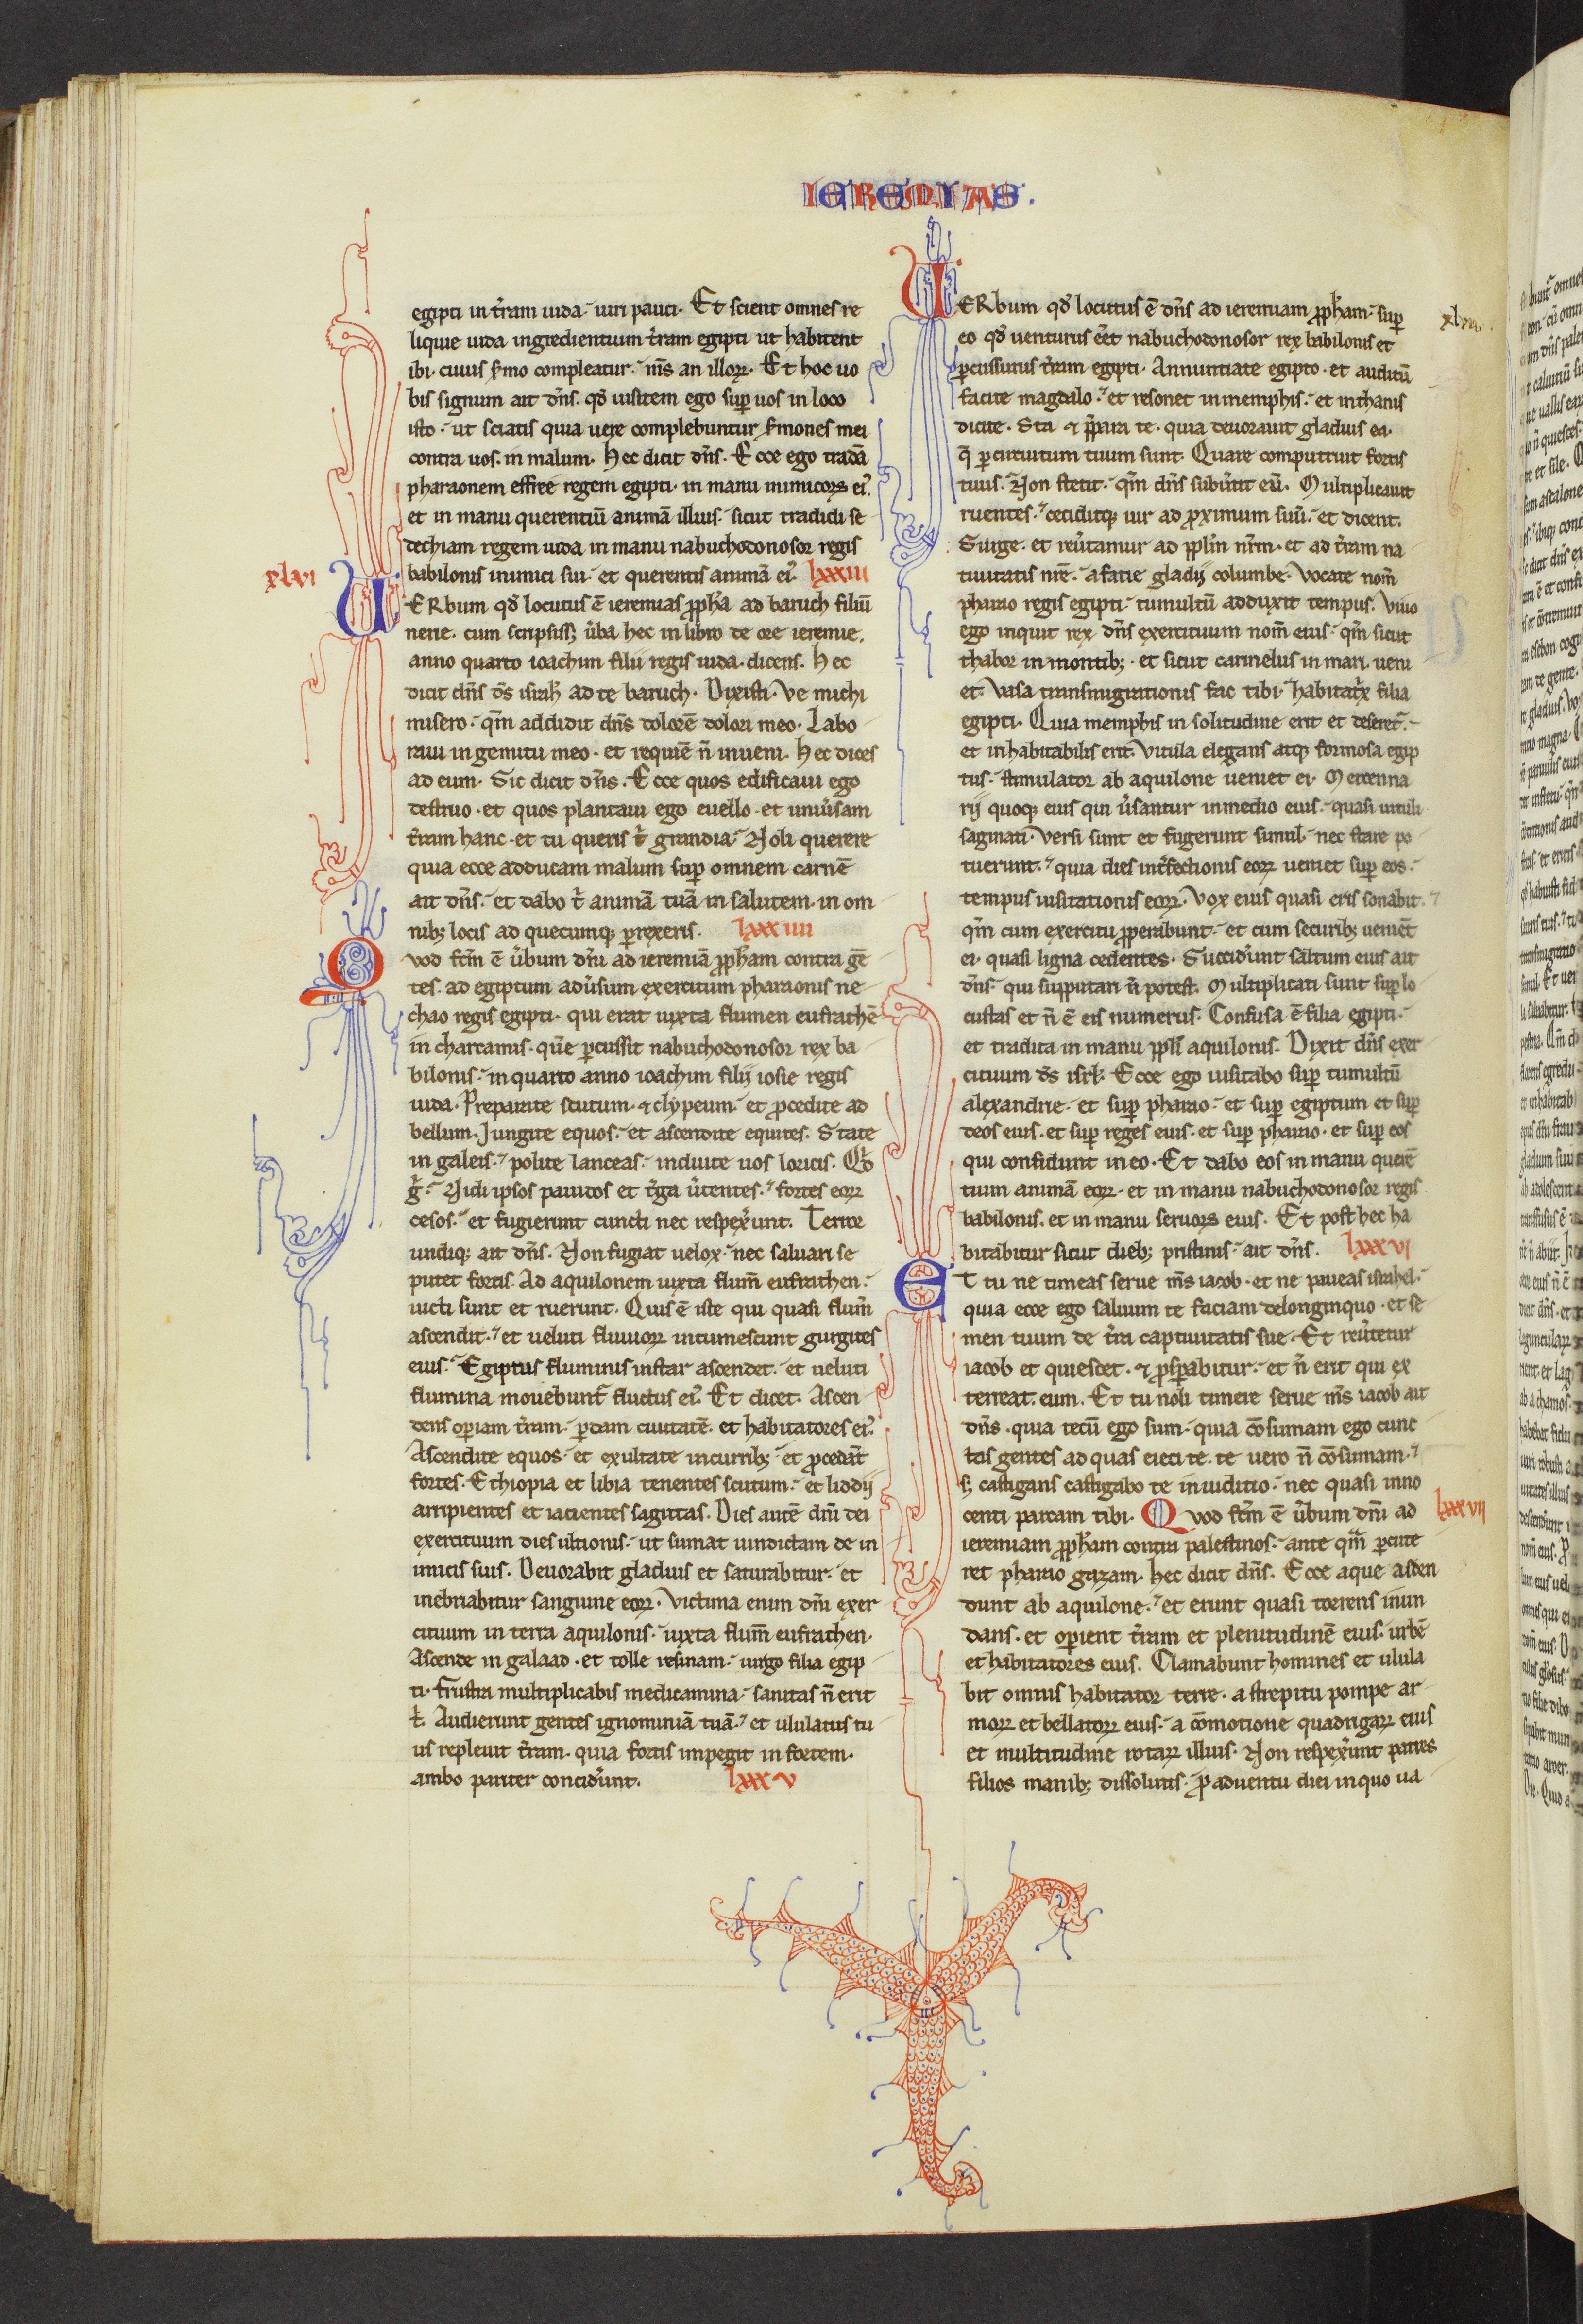 IEREMIAS.
egipti in t̄ram iuda. uiri pauci. Et scient omnes re
liquie iuda ingredientium t̄ram egipti ut habitent
ibi. cuius s̄mo compleatur. m̄s an illoꝝ. Et hoc uo
bis signum ait dn̄s. qd̄ uisitem ego sup̄ uos in loco
isto. ut sciatis quia uere complebuntur s̄mones mei
contra uos. in malum. Hec dicit dn̄s. Ecce ego tradā
pharaonem effree regem egipti. in manu inimicoꝝ ei᾽.
et in manu querentiū animā illius. sicut tradidi se
dechiam regem iuda in manu nabuchodonosor regis
babilonis inimici sui. et querentis animā ei᾽. lxxxiii
xlvi
VERbum qd̄ locutus ē ieremias ꝓph̄a ad baruch filiū
nerie. cum scripsiss; ūba hec in libro de ore ieremie.
anno quarto ioachim filii regis iuda. dicens. Hec
dicit dn̄s ds̄ isrl̄ ad te baruch. Dixisti. Ve michi
misero. qm̄ addidit dn̄s dolorē dolori meo. Labo
raui in gemitu meo. et requiē n̄ inueni. Hec dices
ad eum. Sic dicit dn̄s. Ecce quos edificaui ego
destruo. et quos plantaui ego euello. et uniūsam
t̄ram hanc. et tu queris t̄ grandia. Noli querere
quia ecce adducam malum sup̄ omnem carnē
ait dn̄s. et dabo t̄ animā tuā in salutem. in om
nib; locis ad quecumq; ꝑrexeris. lxxxiiii
Quod fc̄m ē ūbum dn̄i ad ieremiā ꝓph̄am contra gē
tes. ad egiptum adūsum exercitum pharaonis ne
chao regis egipti. qui erat iuxta flumen eufrathē
in charcamis. quē ꝑcussit nabuchodonosor rex ba
bilonis. in quarto anno ioachim filij iosie regis
iuda. Preparate scutum. ⁊ clypeum. et ꝓcedite ad
bellum. Jungite equos. et ascendite equites. State
in galeis. polite lanceas. induite uos loricis. Qd̄
g̊. Uidi ipsos pauidos et t̄ga ūtentes. fortes eoꝝ
cesos. et fugierunt cuncti nec respex̄unt. Terror
undiq; ait dn̄s. Non fugiat uelox. nec saluari se
putet fortis. Ad aquilonem iuxta flum̄ eufrathen.
uicti sunt et ruerunt. Quis ē iste qui quasi flum̄
ascendit. et ueluti fluuioꝝ intumescunt gurgites
eius. Egiptus fluminis instar ascendet. et ueluti
flumina mouebunt᾽ fluctus ei᾽. Et dicet. Ascen
dens oꝑiam t̄ram. ꝑdam ciuitatē. et habitatores ei᾽.
Ascendite equos. et exultate in currib; et ꝓcedāt
fortes. Ethiopia et libia tenentes scutum. et liddij
arripientes et iacientes sagittas. Dies autē dn̄i dei
exercituum dies ultionis. ut sumat uindictam de in
imicis suis. Deuorabit gladius et saturabitur. et
inebriabitur sanguine eoꝝ. Victima enim dn̄i exer
cituum in terra aquilonis. iuxta flum̄ eufrathen.
Ascende in galaad. et tolle resinam. uirgo filia egip
ti. Frustra multiplicabis medicamina. sanitas n̄ erit
t̄. Audierunt gentes ignominiā tuā. et ululatus tu
us repleuit t̄ram. quia fortis impegit in fortem.
ambo pariter concid̄unt. lxxxv
VERbum qd̄ locutus ē dn̄s ad ieremiam ꝓph̄am. sup̄
eo qd̄ uenturus eēt nabuchodonosor rex babilonis et
ꝑcussurus t̄ram egipti. Annuntiate egipto. et auditū
facite magdalo. et resonet in memphis. et in thanis
dicite. Sta ⁊ p̄para te. quia deuorauit gladius ea.
q̄ ꝑ circuitum tuum sunt. Quare computruit fortis
tuus. Non stetit. qm̄ dn̄s subūtit eū. Multiplicauit
ruentes. ceciditq; uir ad ꝓximum suū. et dicent.
Surge. et reūtamur ad ppl̄m nr̄m. et ad t̄ram na
tiuitatis nr̄e. a facie gladij columbe. Vocate nom̄
pharao regis egipti. tumultū adduxit tempus. Viuo
ego inquit rex dn̄s exercituum nom̄ eius. qm̄ sicut
thabor in montib;. et sicut carmelus in mari. ueni
et. Vasa transmigrationis fac tibi. habitat̄x filia
egipti. Quia memphis in solitudine erit et deseret᾽.
et inhabitabilis erit. Vitula elegans atq; formosa egip
tus. stimulator ab aquilone ueniet ei. Mercenna
rij quoq; eius qui ūsantur in medio eius. quasi uituli
saginati. Versi sunt et fugerunt simul. nec stare po
tuerunt. quia dies int̄fectionis eoꝝ ueniet sup̄ eos.
tempus uisitationis eoꝝ. Vox eius quasi eris sonabit.
qm̄ cum exercitu ꝓperabunt. et cum securib; ueniēt
ei. quasi ligna cedentes. Succid̄unt saltum eius ait
dn̄s. qui supputari n̄ potest. Multiplicati sunt sup̄ lo
custas et n̄ ē eis numerus. Confusa ē filia egipti.
et tradita in manu ppl̄i aquilonis. Dixit dn̄s exer
cituum ds̄ isrl̄. Ecce ego uisitabo sup̄ tumultū
alexandrie. et sup̄ pharao. et sup̄ egiptum et sup̄
deos eius. et sup̄ reges eius. et sup̄ pharao. et sup̄ eos
qui confidunt in eo. Et dabo eos in manu querē
tium animā eoꝝ. et in manu nabuchodonosor regis
babilonis. et in manu seruoꝝ eius. Et post hec ha
bitabitur sicut dieb; pristinis. ait dn̄s. lxxxvi
Et tu ne timeas serue m̄s iacob. et ne paueas israhel.
quia ecce ego saluum te faciam de longinquo. et se
men tuum de t̄ra captiuitatis sue. Et reūtetur
iacob et quiescet. ⁊ ꝓsꝑabitur. et n̄ erit qui ex
terreat. eum. Et tu noli timere serue m̄s iacob ait
dn̄s. quia tecū ego sum. quia cōsumam ego cunc
tas gentes ad quas eieci te. te uero n̄ cōsumam.
s; castigans castigabo te in iuditio. nec quasi inno
centi parcam tibi. Quod fc̄m ē ūbum dn̄i ad lxxxvii
ieremiam ꝓph̄am contra palestinos. ante qm̄ ꝑcute
ret pharao gazam. Hec dicit dn̄s. Ecce aque ascen
dunt ab aquilone. et erunt quasi torrens inun
dans. et oꝑient t̄ram et plenitudinē eius. urbē
et habitatores eius. Clamabunt homines et ulula
bit omnis habitator terre. a strepitu pompe ar
moꝝ et bellatoꝝ eius. a cōmotione quadrigaꝝ eius
et multitudine rotaꝝ illius. Non respex̄unt patres
filios manib; dissolutis. ꝓ aduentu diei in quo ua